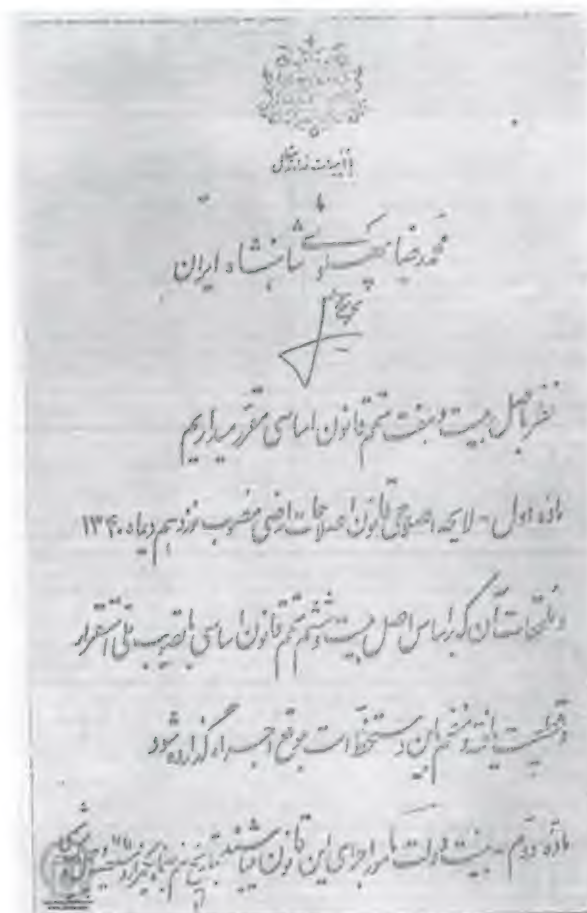 با تأییدات خداوند متعال
ما
محمدرضا پهلوی شاهنشاه ایران
نظر باصل بیست و هفت متمم قانون اساسی مقرر میداریم
ماده اول - لایحه اصلاحی قانون اصلاحات ارضی مصوب نوزدهم دیماه ۱۳۴۰
و ملحقات آن که براساس اصل بیست و ششم متمم قانون اساسی با تصویب ملی استقرار
و قطعیت یافته و منضم باین دستخط است بموقع اجراء گذارده شود
ماده دوم - هیئت دولت مأمور اجرای این قانون میباشند بتاریخ